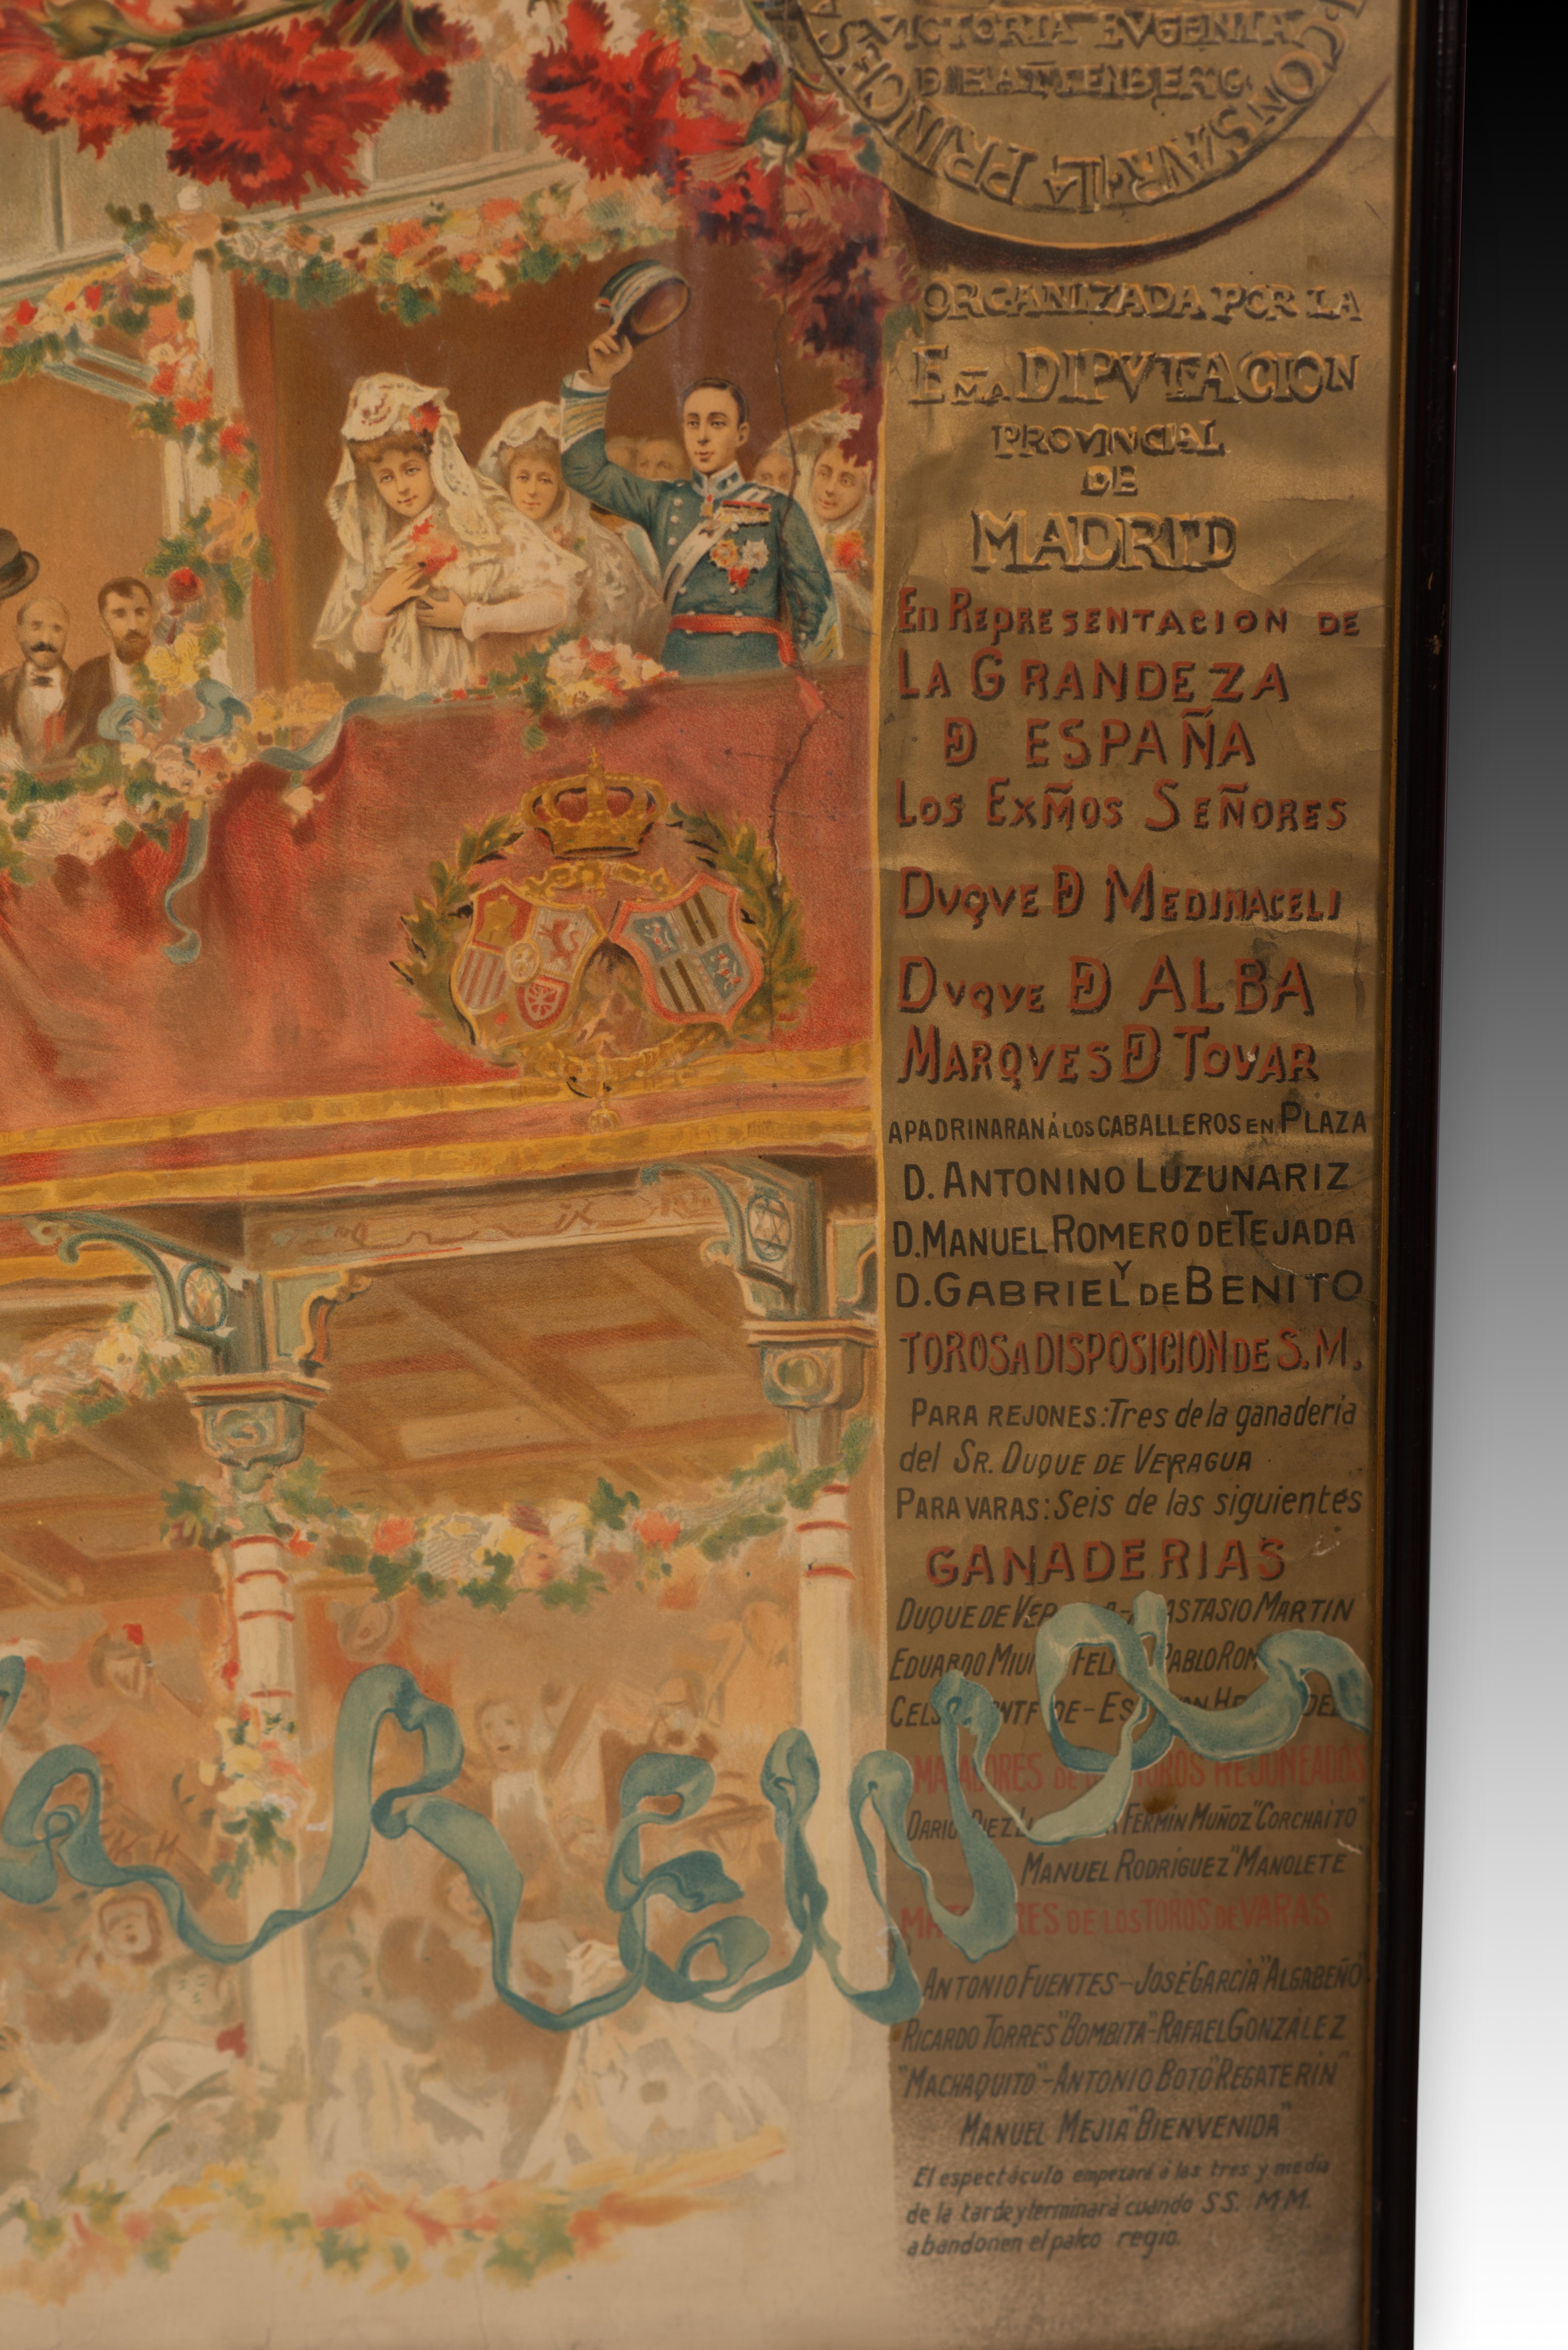 VICTORIA EVGENIA
DE BATTENBERG
CON S.A.R. LA PRINCESA
ORGANIZADA POR LA
EMA DIPVTACION
PROVINCIAL
DE
MADRID
En REPRESENTACION DE
LA GRANDEZA
D ESPAÑA
LOS EXM̃OS SEÑORES
DVQVE D MEDINACELI
DVQVE D ALBA
MARQVES D TOVAR
APADRINARAN Á LOS CABALLEROS EN PLAZA
D. ANTONINO LUZUNARIZ
D. MANUEL ROMERO DE TEJADA
Y
D. GABRIEL DE BENITO
TOROS A DISPOSICION DE S.M.
PARA REJONES: Tres de la ganaderia
del SR. DUQUE DE VERAGUA
PARA VARAS: Seis de las siguientes
GANADERIAS
DUQUE DE VER A - ASTASIO MARTIN
EDUARDO MIU FEL PABLO ROM
CELS NTE DE - ES AN HE DE
MATADORES DE TOROS REJONEADOS
DARIO DIEZ L FERMIN MUÑOZ "CORCHAITO"
MANUEL RODRIGUEZ "MANOLETE"
MA RES DE LOS TOROS DE VARAS
ANTONIO FUENTES - JOSÈ GARCIA "ALGABEÑO"
RICARDO TORRES "BOMBITA" - RAFAEL GONZÀLEZ
"MACHAQUITO" - ANTONIO BOTO "REGATERIN"
MANUEL MEJIA "BIENVENIDA"
El espectáculo empezará á las tres y media
de la tarde y terminará cuando SS. MM.
abandonen el palco regio.
a REina